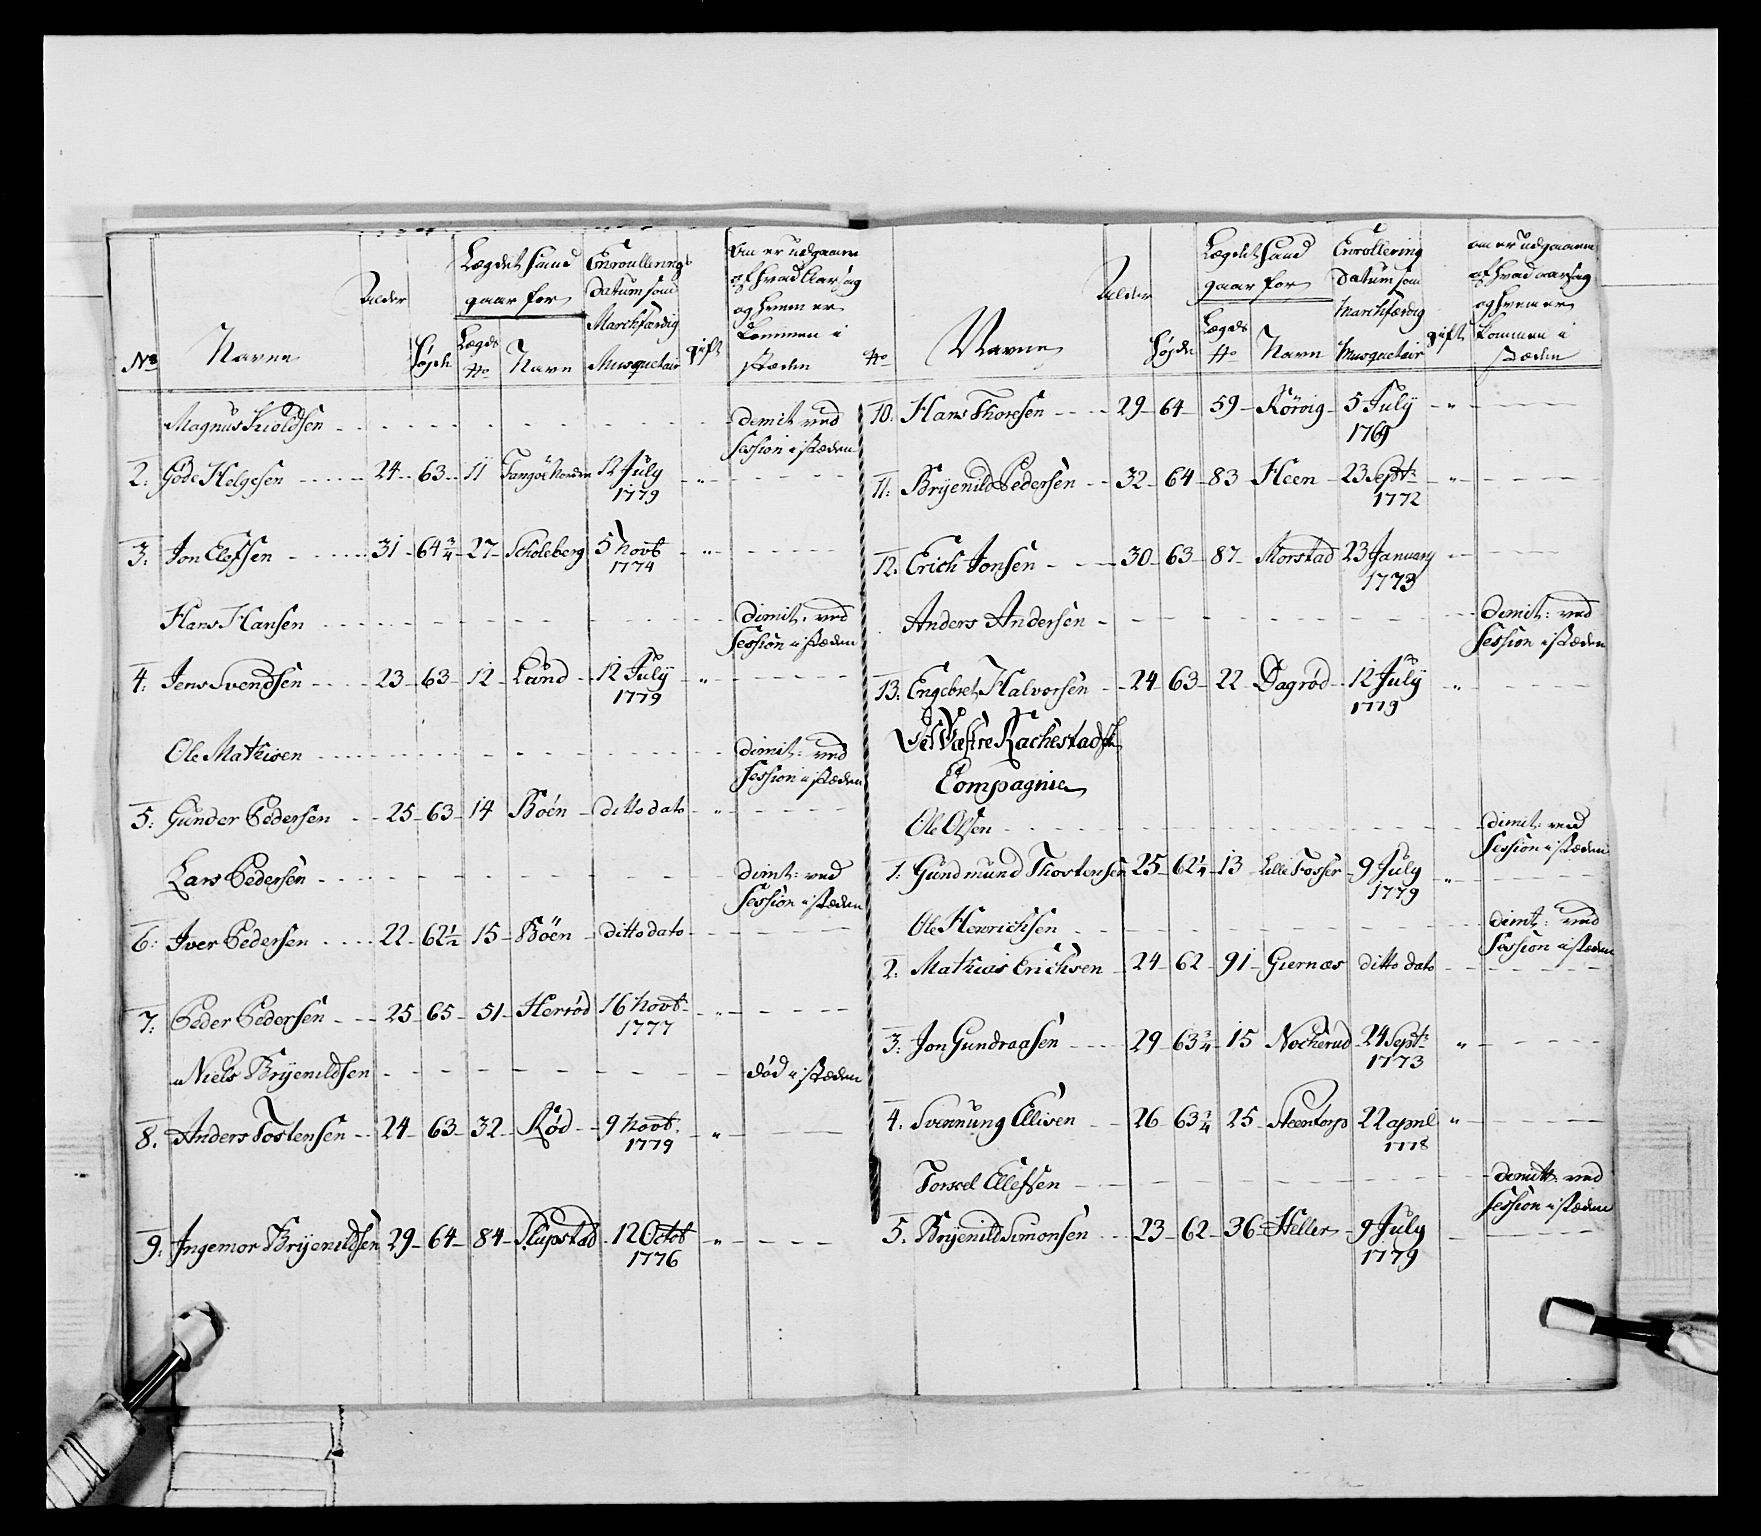 No Navne Alder Højde Lægdet hand gaar for Lægds No Navn Enroullerings Datum som Marchfærdig Musquetair gift Om er udgaaen af hvad Aarsag og hvem er kommen i stæden
Magnus Kioldsen dimit ved
Session i stæden
2. Gode Helgesen 24 63 11 12 July
1779
3. Jon Elefsen 31 64 3/4 27 Scholeberg 5 Novb
1774
Hans Hansen dimit. ved
Session i stæden
4. Jens Svendsen 23 63 12 Lund 12 July
1779
Ole Mathisen dimit: ved
Session i stæden
5. Gunder Pedersen 25 63 14 Böen ditto dato
Lars Pedersen dimt: ved
Session i stæden
6. Iver Pedersen 22 62 1/2 15 Böen ditto dato
7. Peder Pedersen 25 65 51 Herröd 16 Novb
1777
Niels Bryenildsen död i stæden
8. Anders Tostensen 24 63 32 Röd 9 Novb.
1779
9. Ingemor Bryenildsen 29 64 84 Slupstad 12 Octob
1776
No Navne Alder Højde Lægdet hand gaar for Lægds No Navn Enrollering Datum som Marchfærdig Musquetair gift om er udgaaen af hvad aarsag og hvem er kommen i stæden
10. Hans Thoresen 29 64 59 Rörvig 5 July
1769
11. Bryenild Pedersen 32 64 83 Heen 23 Sept:
1772
12. Erich Jonsen 30 63 87 Storstad 23 January
1773
Anders Andersen dimit: ved
Session i stæden
13. Engebret Halvorsen 24 63 22 Dagröd 12 July
1779
Ved Vestre Rachestadske
Compagnie
Ole Olsen dimit: ved
Session i stæden
1. Gundmund Thostensen 25 62 1/4 13 Lille Fosser 9 July
1779
Ole Henrichsen dimt: ved
Session i stæden
2. Mathias Erichsen 24 62 91 Giernæs ditto dato
3. Jon Gundraasen 29 63 3/4 15 Nocherud 24 Sept:
1773
4. Svennung Ellisen 26 63 3/4 25 Steentorp 22 april
1778
Torkel Ellefsen dimitt: ved
Session i stæden
5. Bryenild Simonsen 23 62 36 Heller 9 July
1779